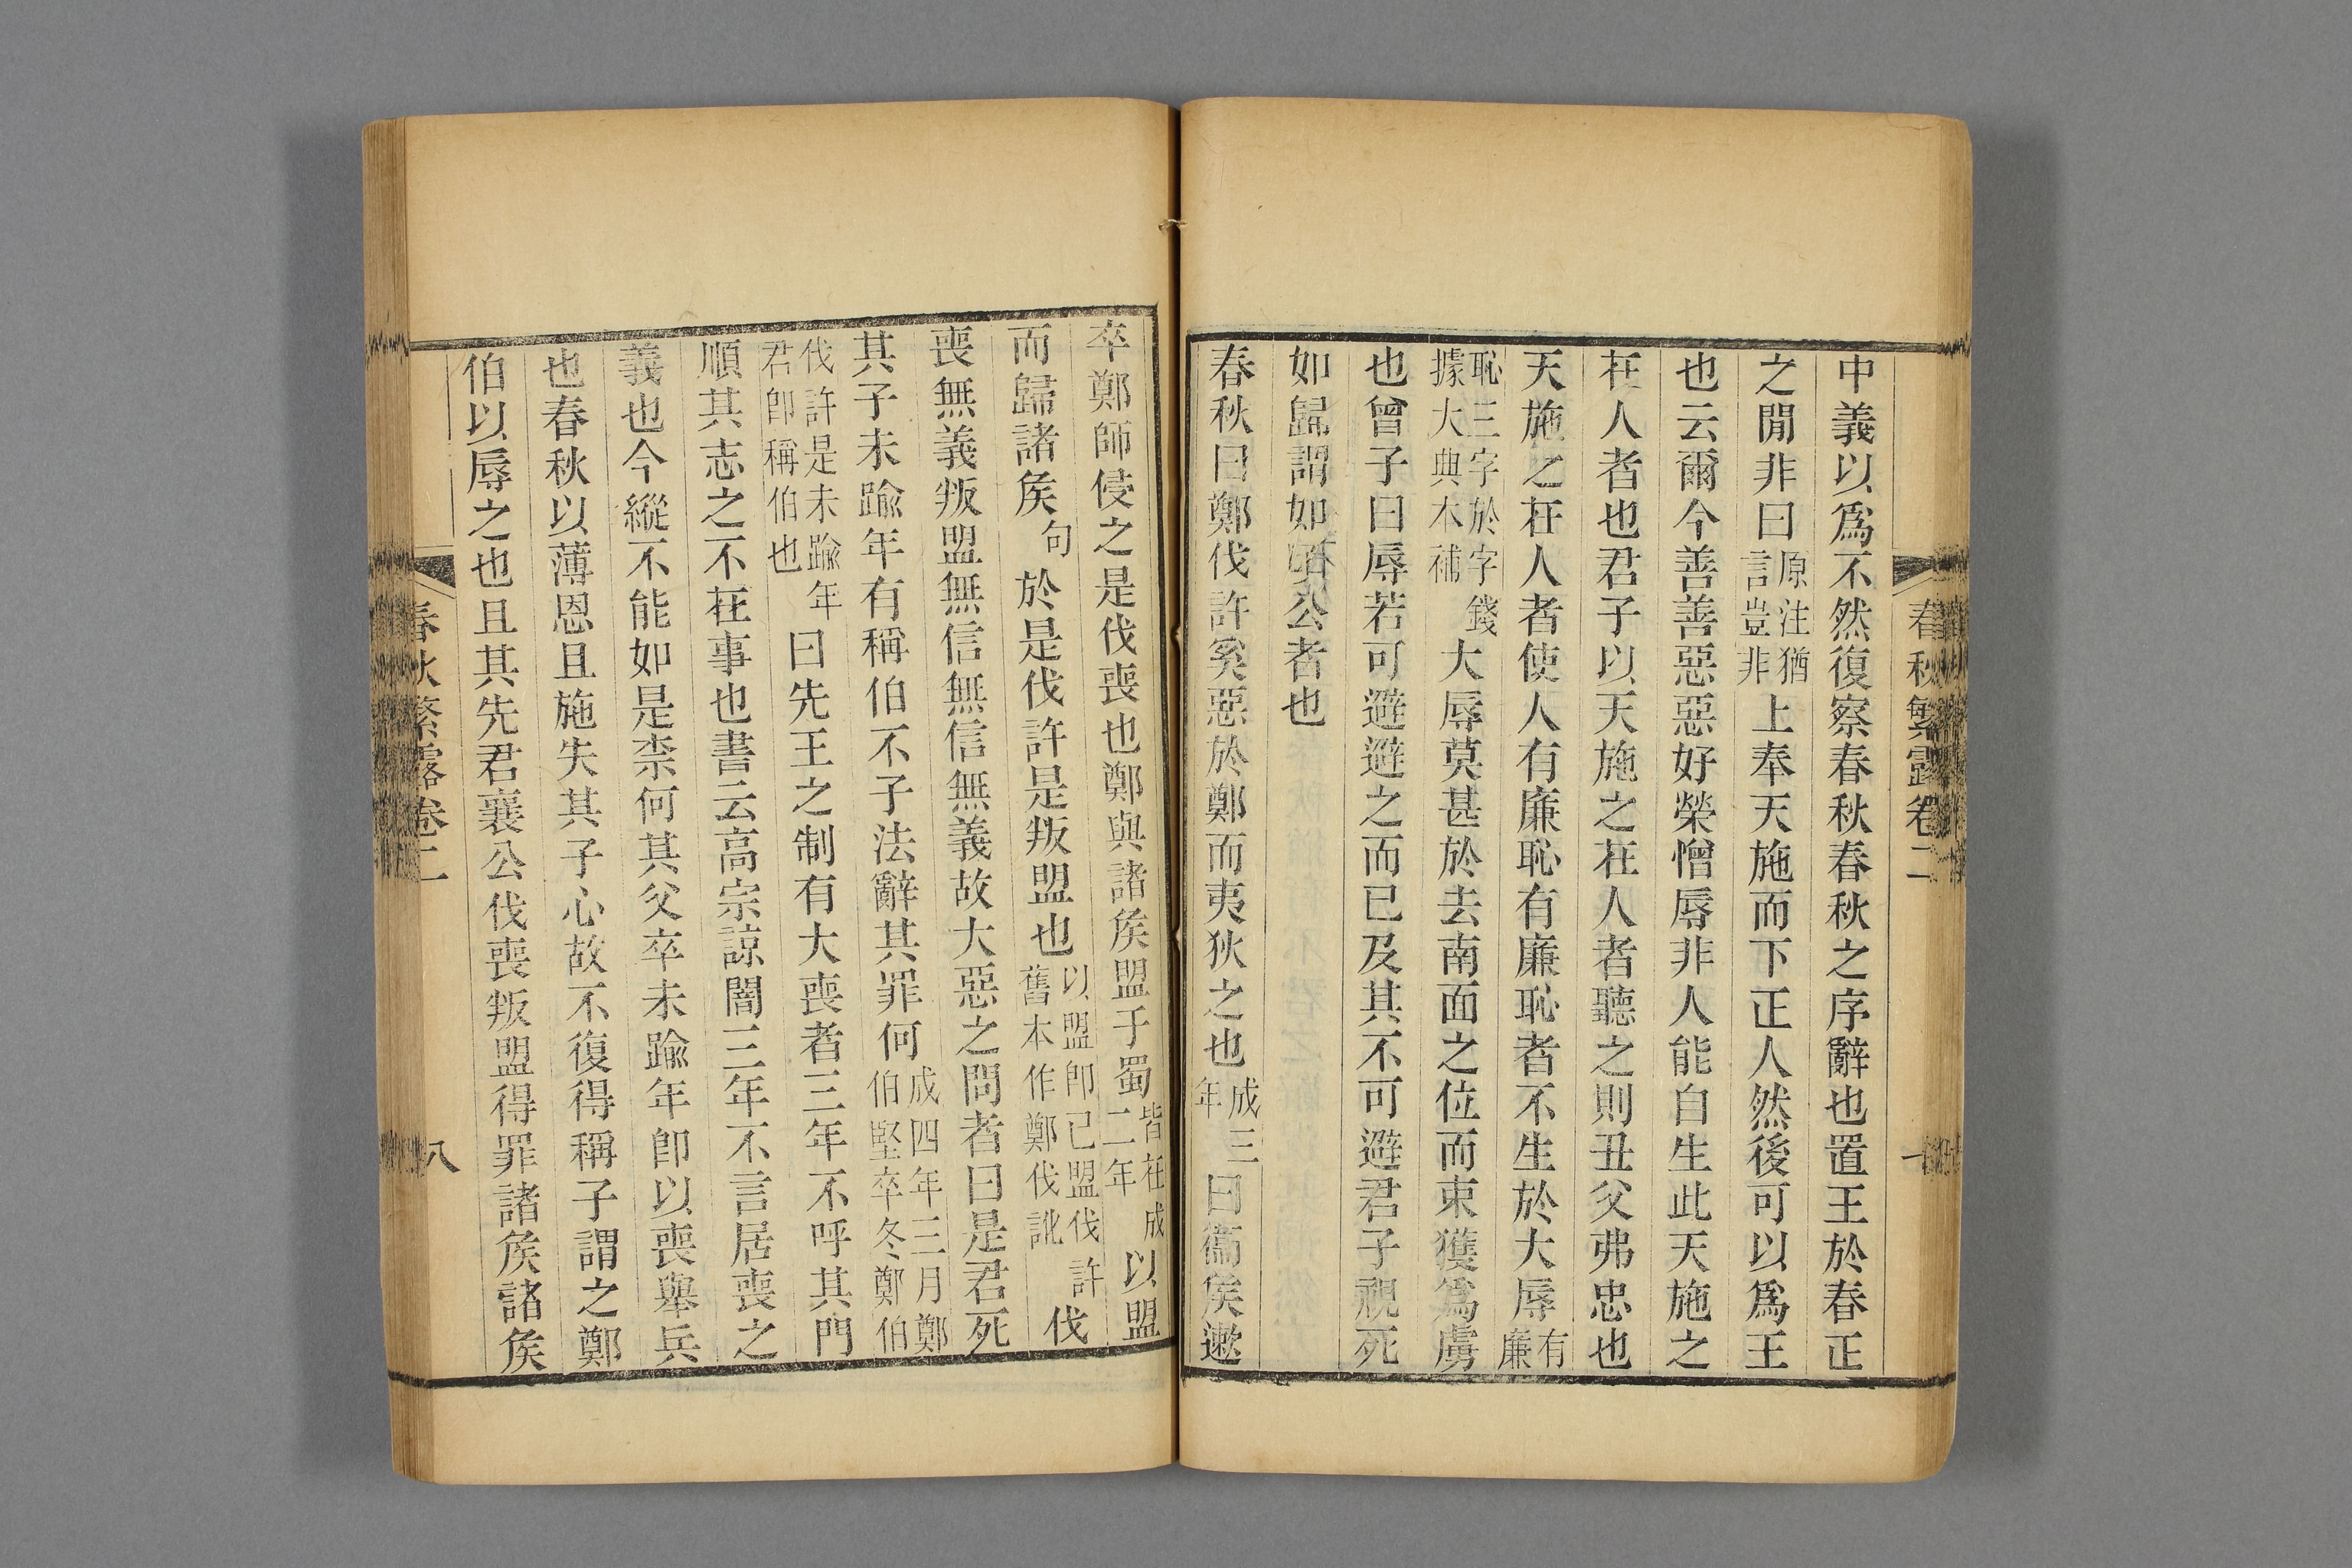 春秋繁露卷二
中義以爲不然復察春秋春秋之序辭也置王於春正
之閒非曰原注猶言豈非上奉天施而下正人然後可以爲王
也云爾今善善惡惡好榮憎辱非人能自生此天施之
在人者也君子以天施之在人者聽之則丑父弗忠也
天施之在人者使人有廉恥有廉恥者不生於大辱有廉
恥三字於字錢據大典本補大辱莫甚於去南面之位而束獲爲虜
也曾子曰辱若可避避之而已及其不可避君子視死
如歸謂如頃公者也
春秋曰鄭伐許奚惡於鄭而夷狄之也成三年曰衞矦遬
卒鄭師侵之是伐喪也鄭與諸矦盟于蜀皆在成二年以盟
而歸諸矦句於是伐許是叛盟也以盟卽已盟伐許舊本作鄭伐訛伐
喪無義叛盟無信無信無義故大惡之問者曰是君死
其子未踰年有稱伯不子法辭其罪何成四年三月鄭伯堅卒冬鄭伯
伐許是未踰年君卽稱伯也曰先王之制有大喪者三年不呼其門
順其志之不在事也書云高宗諒闇三年不言居喪之
義也今縱不能如是柰何其父卒未踰年卽以喪舉兵
也春秋以薄恩且施失其子心故不復得稱子謂之鄭
伯以辱之也且其先君襄公伐喪叛盟得罪諸矦諸矦
春秋繁露卷二
八